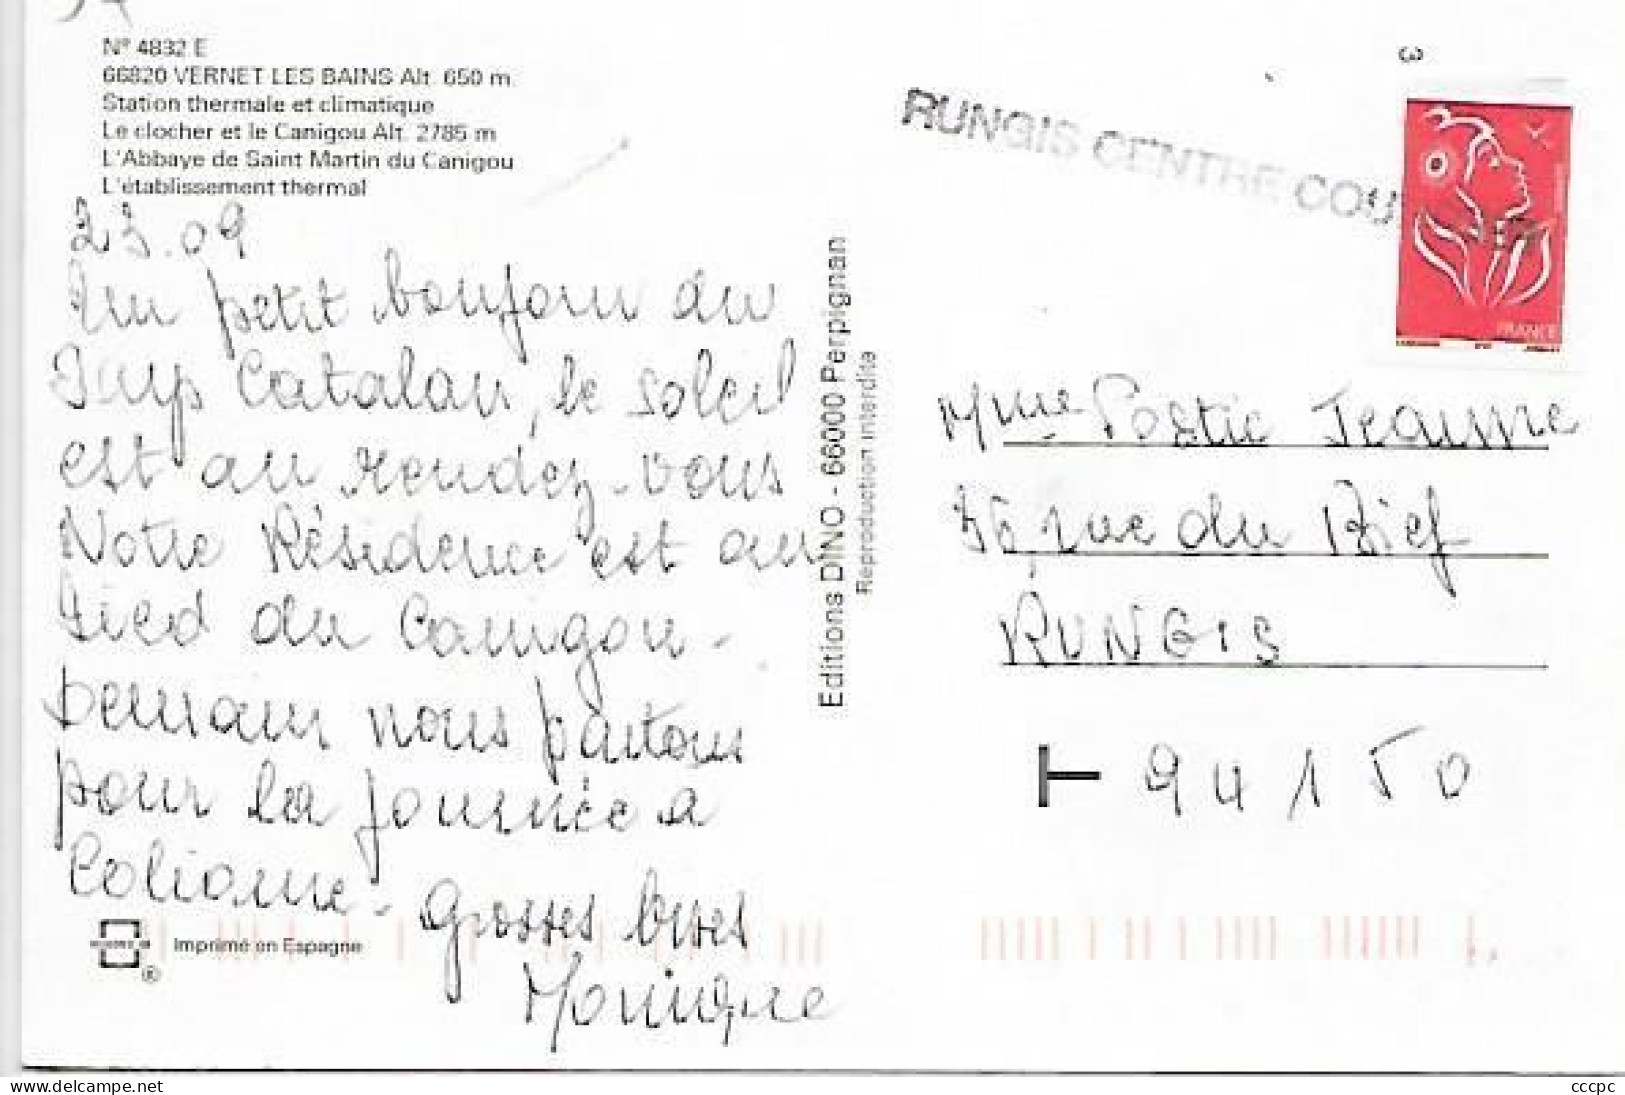 N° 4832 E
66820 VERNET LES BAINS Alt. 650 m
Station thermale et climatique
Le clocher et le Canigou Alt. 2785 m
L'Abbaye de Saint Martin du Canigou
L'établissement thermal
23.09
Un petit bonjour du
Pays Catalan, le soleil
est au rendez-vous
Notre Résidence est au
pied du Canigou -
Demain nous partons
pour la journée a
Colioure - Grosses bises
Monique
Imprimé en Espagne
Editions DINO - 66000 Perpignan
Reproduction interdite
RUNGIS CENTRE COU
3
FRANCE
Mme Postic Jeanne
36 rue du Bief
RUNGIS
T 94150
www.delcampe.net
cccpc